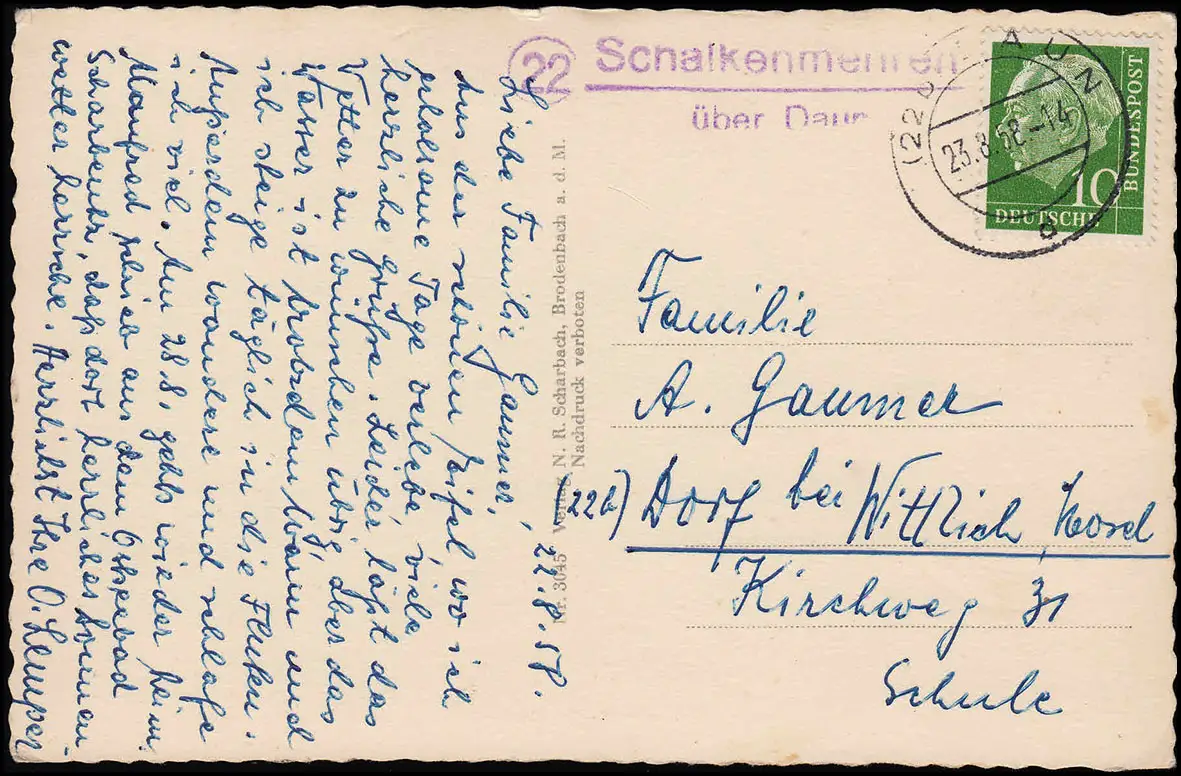 22 Schalkenmehren
über Daun
(22b) DAUN
23.8.58-14
g
10
DEUTSCHE
BUNDESPOST
22.8.58.
Liebe Familie Gaumer,
Aus der schönen Eifel wo ich
erholsame Tage verlebe, viele
herzliche Grüße. Leider läßt das
Vetter zu wünschen übrig, aber das
Wasser ist trotzdem warm und
ich steige täglich in die Fluten.
Außerdem wandere und schlafe
ich viel. Am 28.8. gehts wieder heim.
Manfred schrieb aus dem Ostseebad
Scharbeutz, daß dort herrliches Sommer-
wetter herrsche. Herzlichst Ihre O. Lemper
Nr. 3045 Verlag N. R. Scharbach, Brodenbach a. d. M.
Nachdruck verboten
Familie
A. Gaumer
(22b) Dorf bei Wittlich, Mosel
Kirchweg 31
Schule